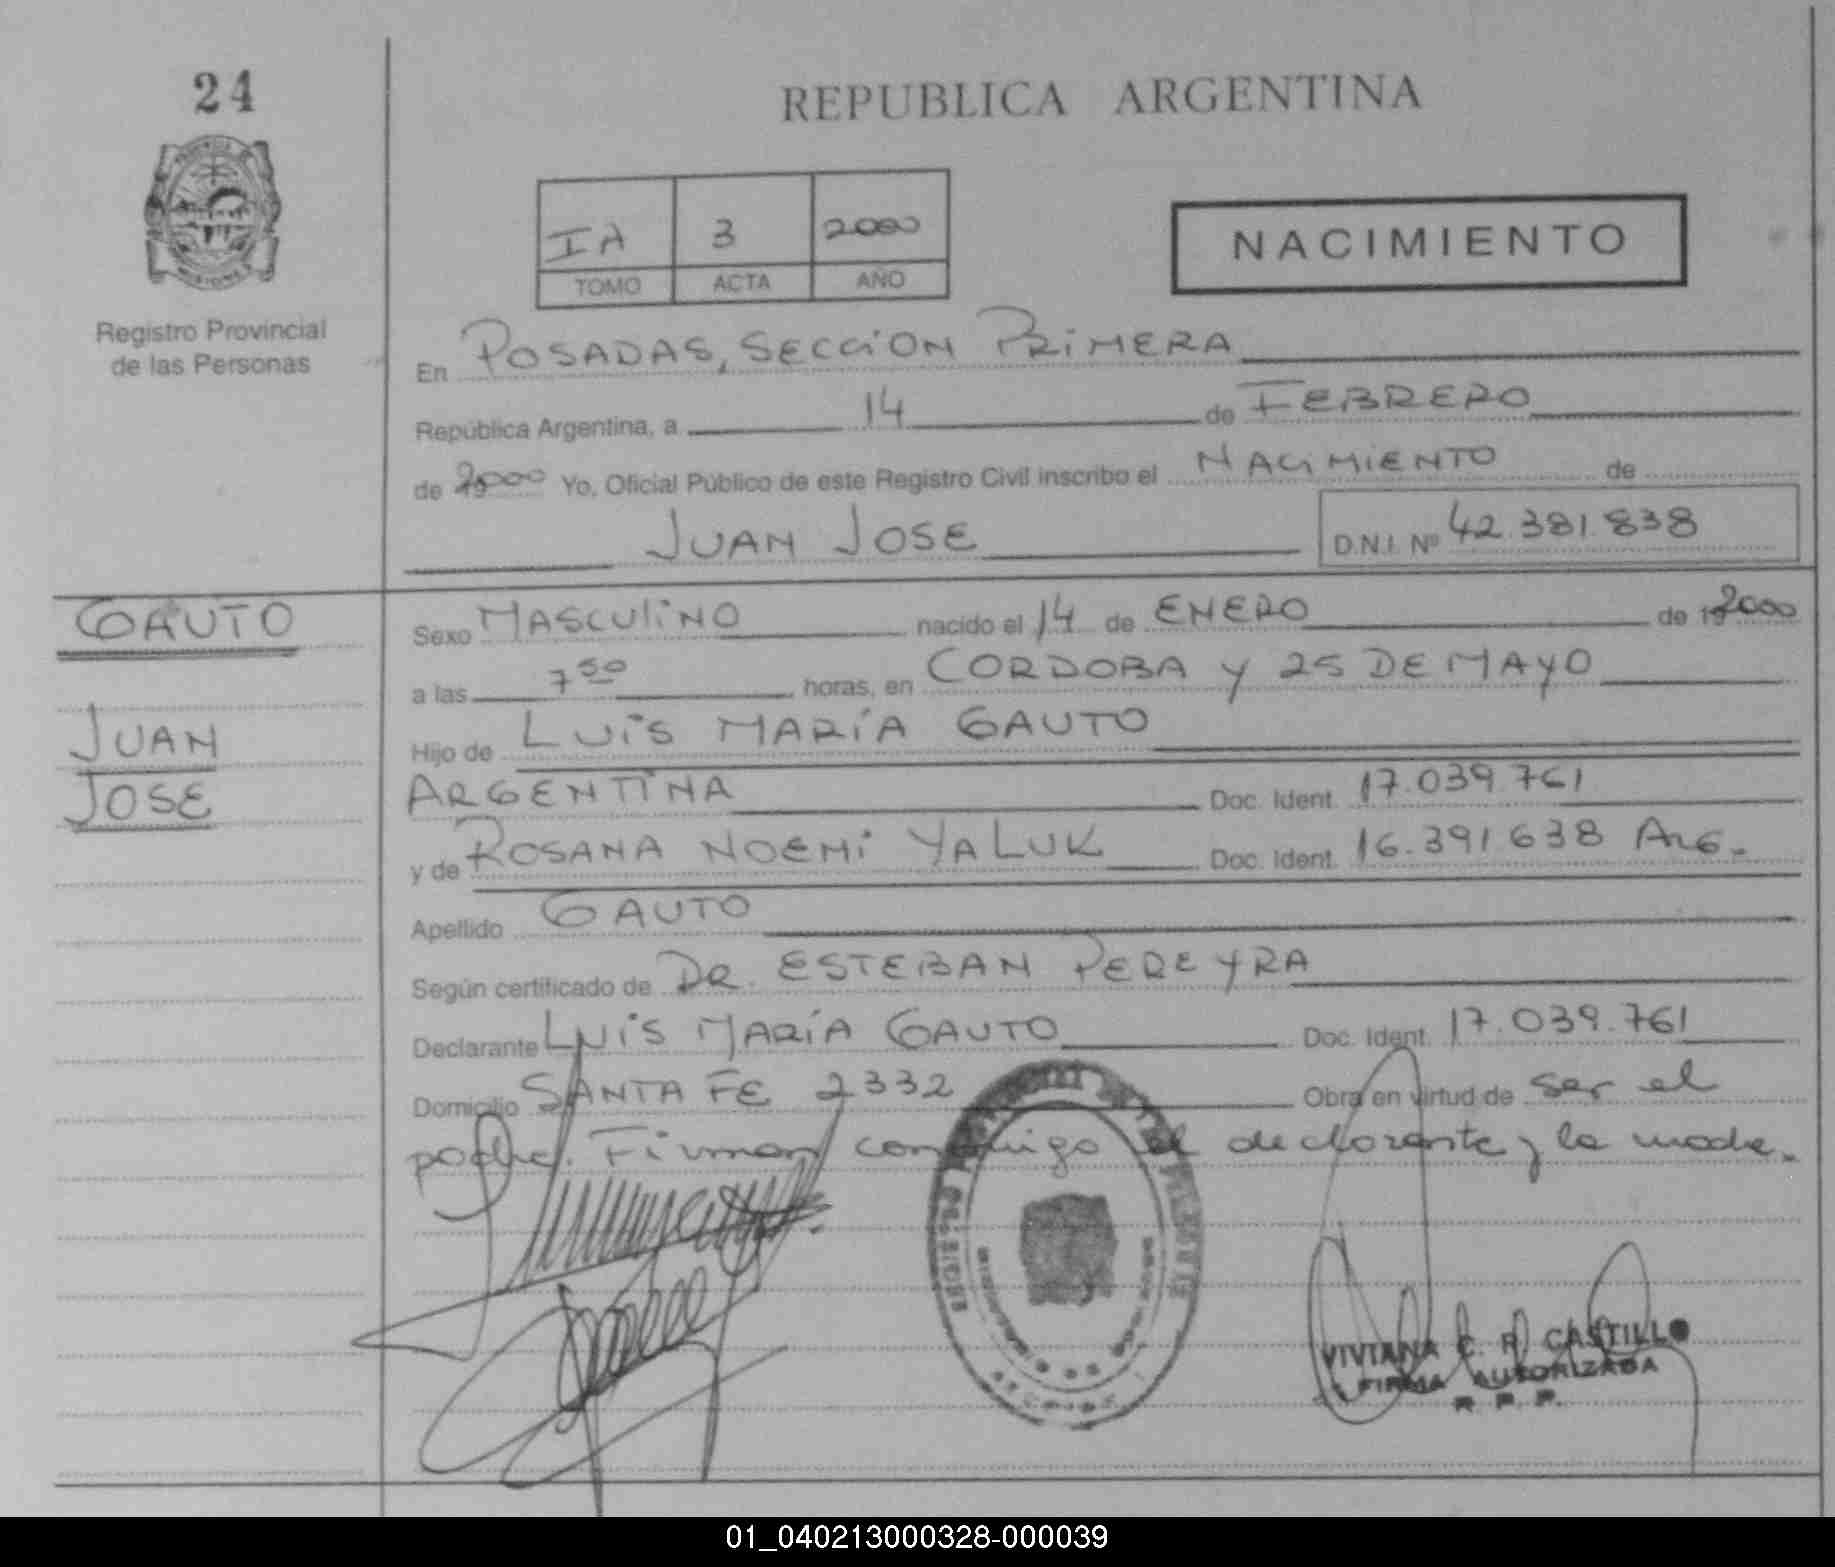 24
REPUBLICA ARGENTINA
IA 3 2000
TOMO ACTA AÑO
NACIMIENTO
Registro Provincial
de las Personas
En POSADAS, SECCION PRIMERA
República Argentina, a 14 de FEBRERO
de 2000 Yo, Oficial Público de este Registro Civil inscribo el NACIMIENTO de
JUAN JOSE D.N.I. Nº 42.381.838
GAUTO
JUAN
JOSE
Sexo MASCULINO nacido el 14 de ENERO de 192000
a las 7 50 horas, en CORDOBA Y 25 DE MAYO
Hijo de LUIS MARÍA GAUTO
ARGENTINA Doc. Ident. 17.039.761
y de ROSANA NOEMI YALUK Doc. Ident. 16.391638 ARG.
Apellido GAUTO
Según certificado de DR. ESTEBAN PEREYRA
Declarante LUIS MARÍA GAUTO Doc. Ident. 17.039.761
Domicilio SANTA FE 2332 Obra en virtud de ser el
padre. Firman conmigo el declarante y la madre.
VIVIANA C. R. CASTILLO
FIRMA AUTORIZADA
R. P. P.
01_040213000328-000039